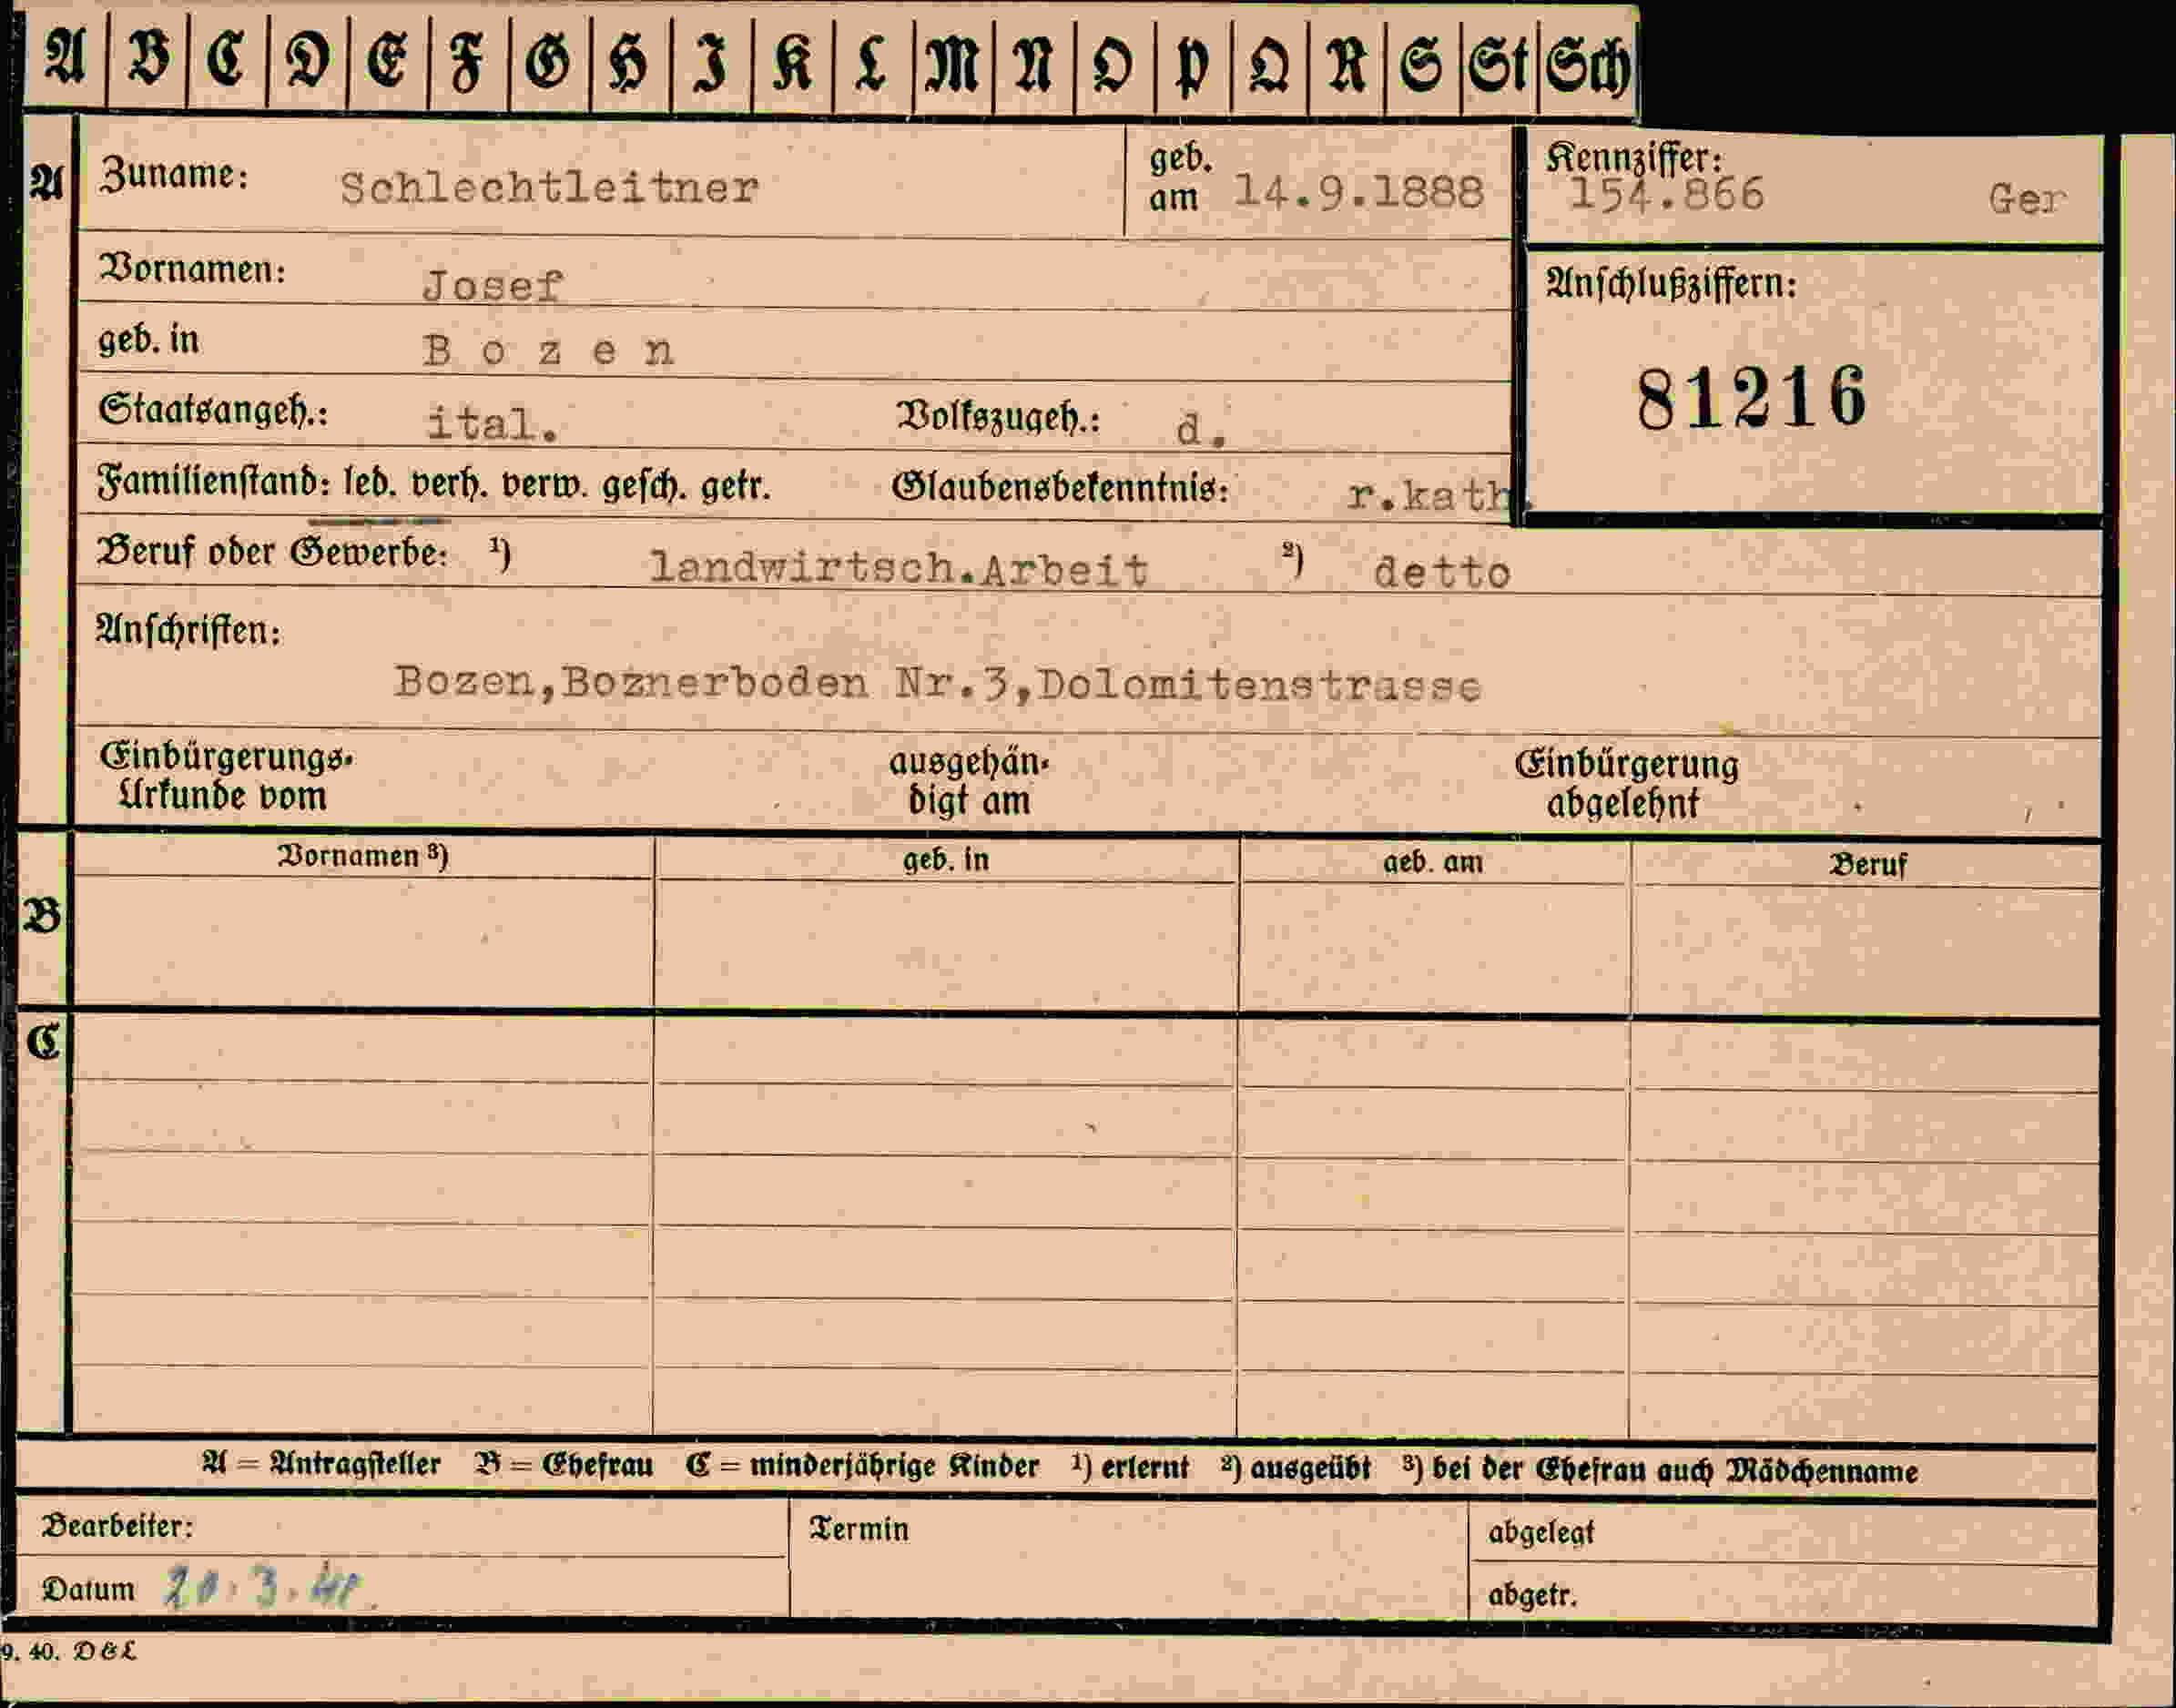 A B C D E F G H I K L M N O P Q R S St Sch
A Zuname: Schlechtleitner geb. am 14.9.1888 Kennziffer: 154.866 Ger
Vornamen: Josef Anschlußziffern:
geb. in Bozen
81216
Staatsangeh.: ital. Volkszugeh.: d.
Familienstand: led. verh. verw. gesch. getr. Glaubensbekenntnis: r.kath.
Beruf oder Gewerbe: ¹) landwirtsch.Arbeit ²) detto
Anschriften:
Bozen,Boznerboden Nr.3,Dolomitenstrasse
Einbürgerungs- ausgehän- Einbürgerung
Urkunde vom digt am abgelehnt
Vornamen ³) geb. in geb. am Beruf
B
C
A = Antragsteller B = Ehefrau C = minderjährige Kinder ¹) erlernt ²) ausgeübt ³) bei der Ehefrau auch Mädchenname
Bearbeiter: Termin abgelegt
Datum 20.3.41. abgetr.
9. 40. D&L